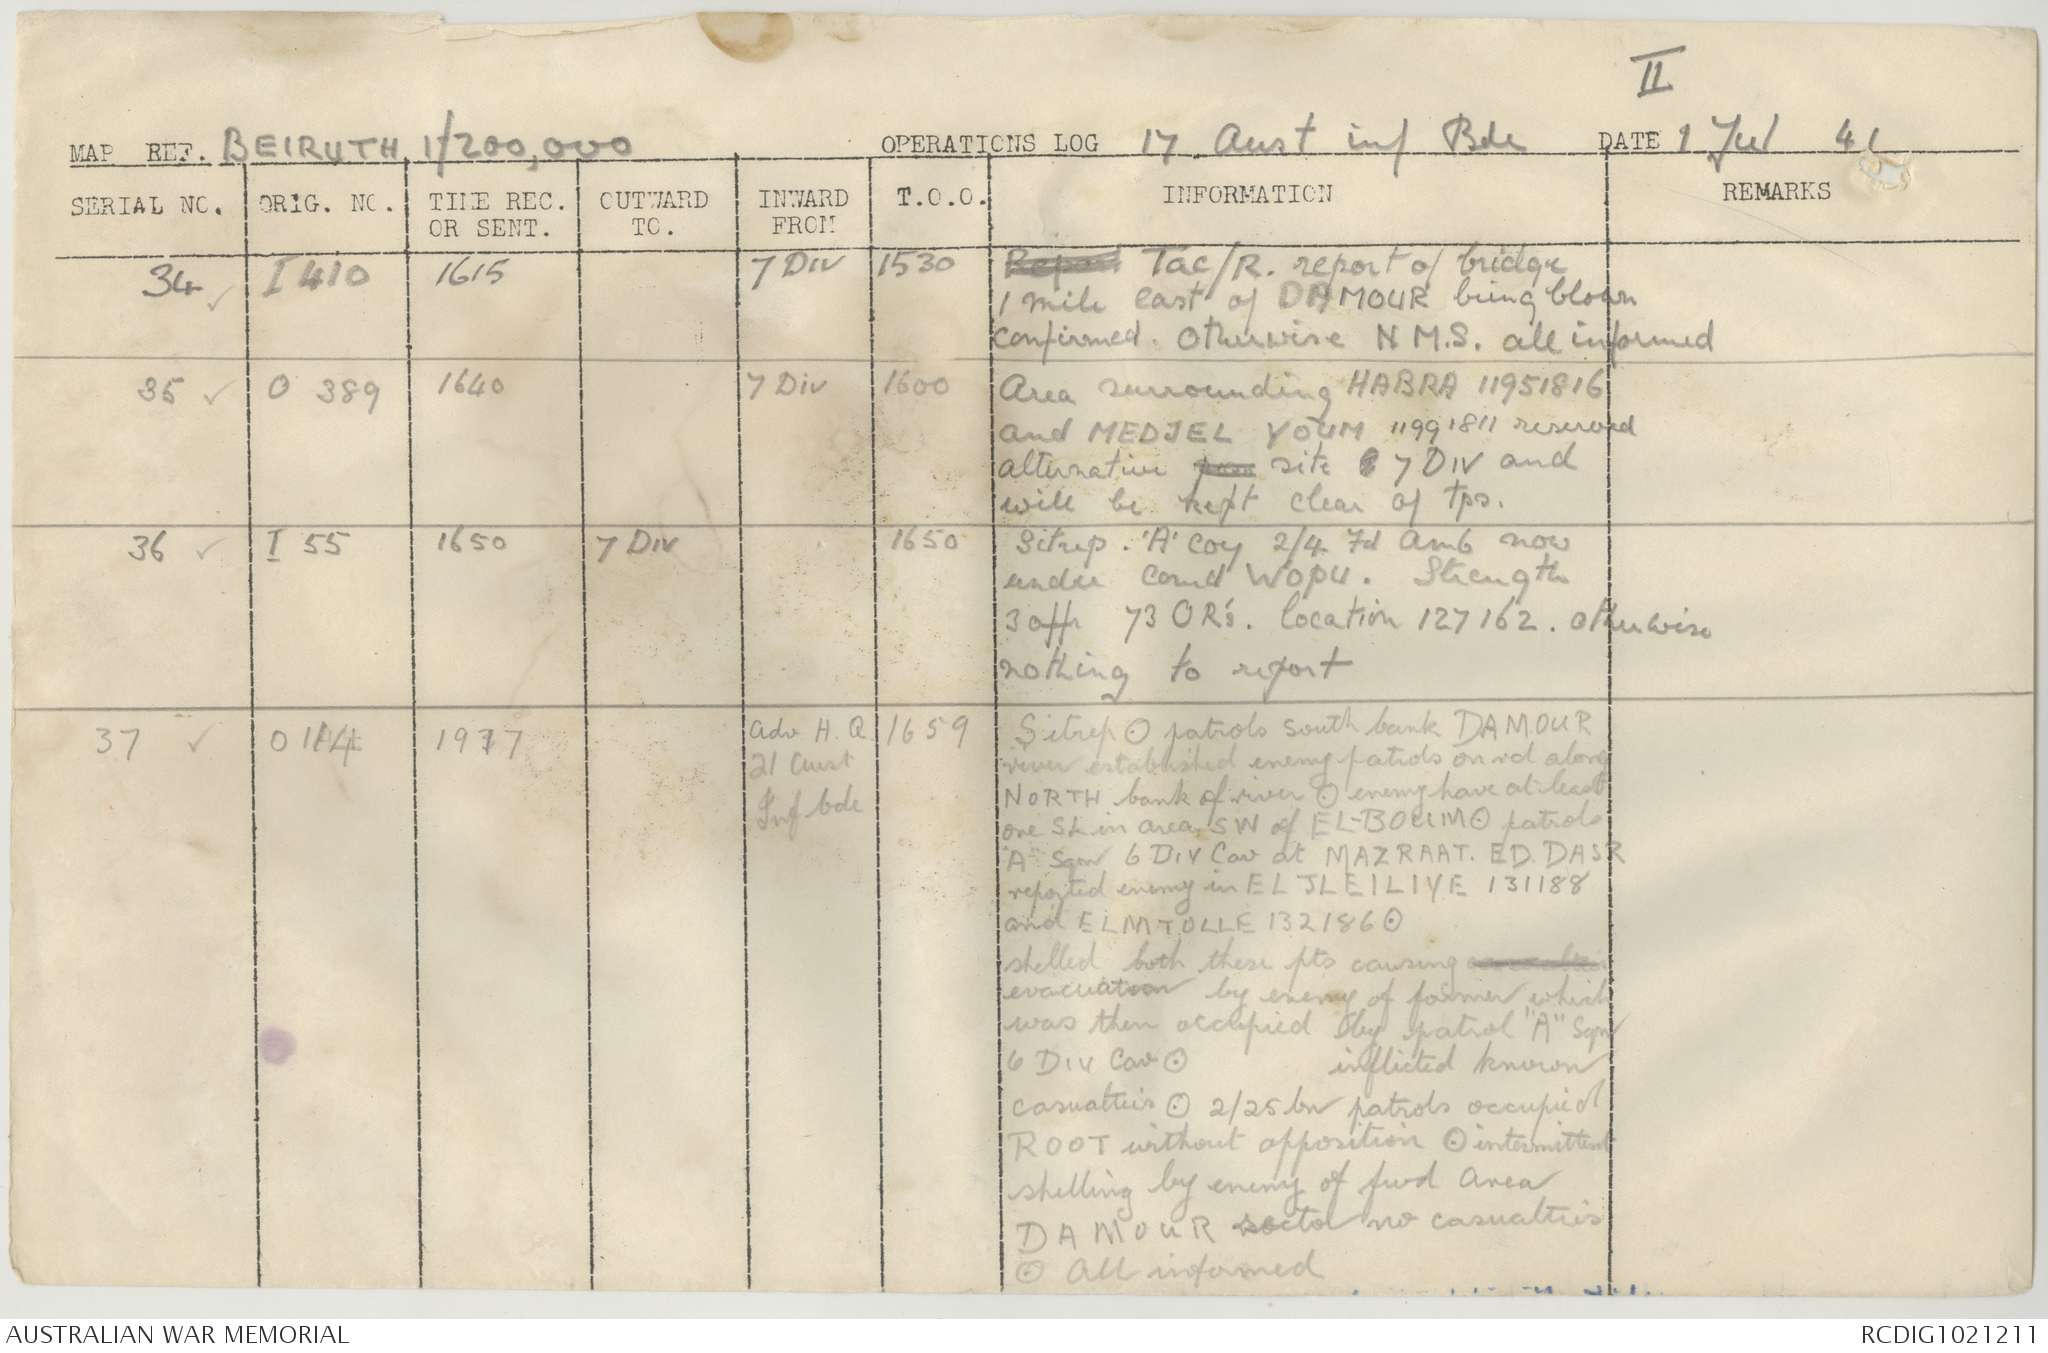 II
MAP REF. BEIRUTH 1/200,000 OPERATIONS LOG 17 Aust inf Bde DATE 1 Jul 41
SERIAL NO. ORIG. NO. TIME REC. OR SENT. OUTWARD TO. INWARD FROM T.O.O. INFORMATION REMARKS
34 ✓ I 410 1615 7 Div 1530 Report Tac/R. report of bridge
1 mile East of DAMOUR being blown
confirmed. Otherwise N.M.S. all informed
35 ✓ O 389 1640 7 Div 1600 Area surrounding HABRA 11951816
and MEDJEL YOUM 11991811 reserved
alternative site 7 DIV and
will be kept clear of tps.
36 ✓ I 55 1650 7 Div 1650 Sitrep. 'A' Coy 2/4 Fd Amb now
under comd WOPU. Strength
3 offr 73 OR's. location 127162. otherwise
nothing to report
37 ✓ O 114 1977 Adv H.Q 1659 Sitrep ⊙ patrols south bank DAMOUR
21 Aust
Inf bde
river established enemy patrols on rd along
NORTH bank of river ⊙ enemy have at least
one SL in area SW of EL-BOUM ⊙ patrols
"A" Sqn 6 Div Cav at MAZRAAT. ED. DASR
reported enemy in EL JLEILIYE 131188
and ELMTOLLE 132186 ⊙
shelled both these pts causing
evacuation by enemy of former which
was then occupied by patrol "A" Sqn
6 Div Cav ⊙ inflicted known
casualties ⊙ 2/25 bn patrols occupied
ROOT without opposition ⊙ intermittent
shelling by enemy of fwd area
DAMOUR sector no casualties
⊙ All informed
AUSTRALIAN WAR MEMORIAL RCDIG1021211